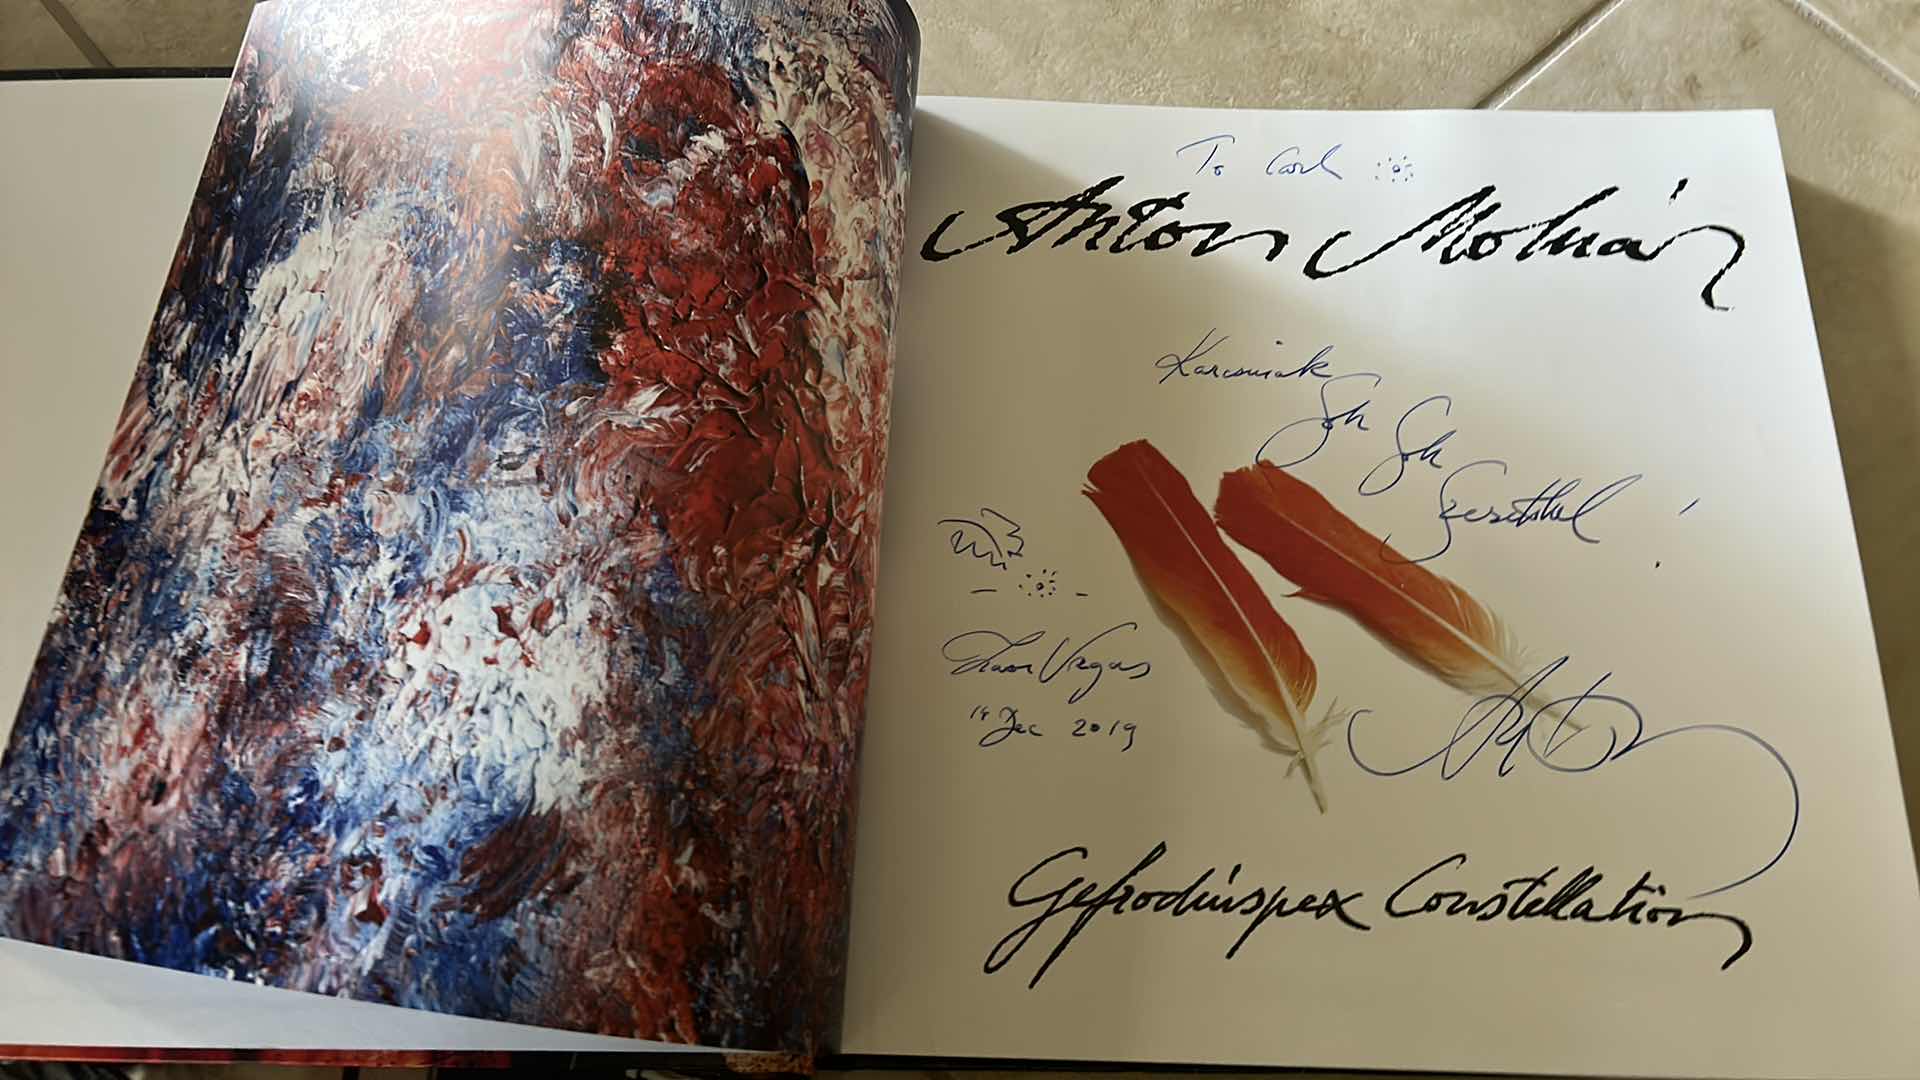 To Carl
Anton Molnár
Karcsinak
Sok Sok
Szeretettel !
Las Vegas
14 Dec 2019
Gefrodinspex Constellation